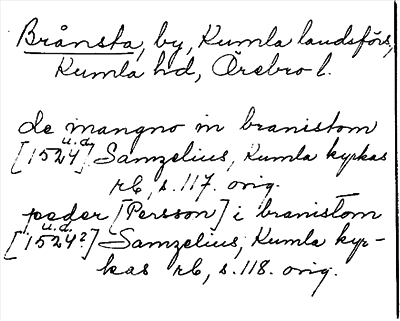 Brånsta, by, Kumla landsförs,
Kumla hd, Örebro l.
de mangno in branistom
[1524 u.d.] Samzelius, Kumla kyrkas
rb, s. 117. orig.
peder [Persson] i branistom
[1524? u.d.] Samzelius, Kumla kyr-
kas rb, s. 118. orig.